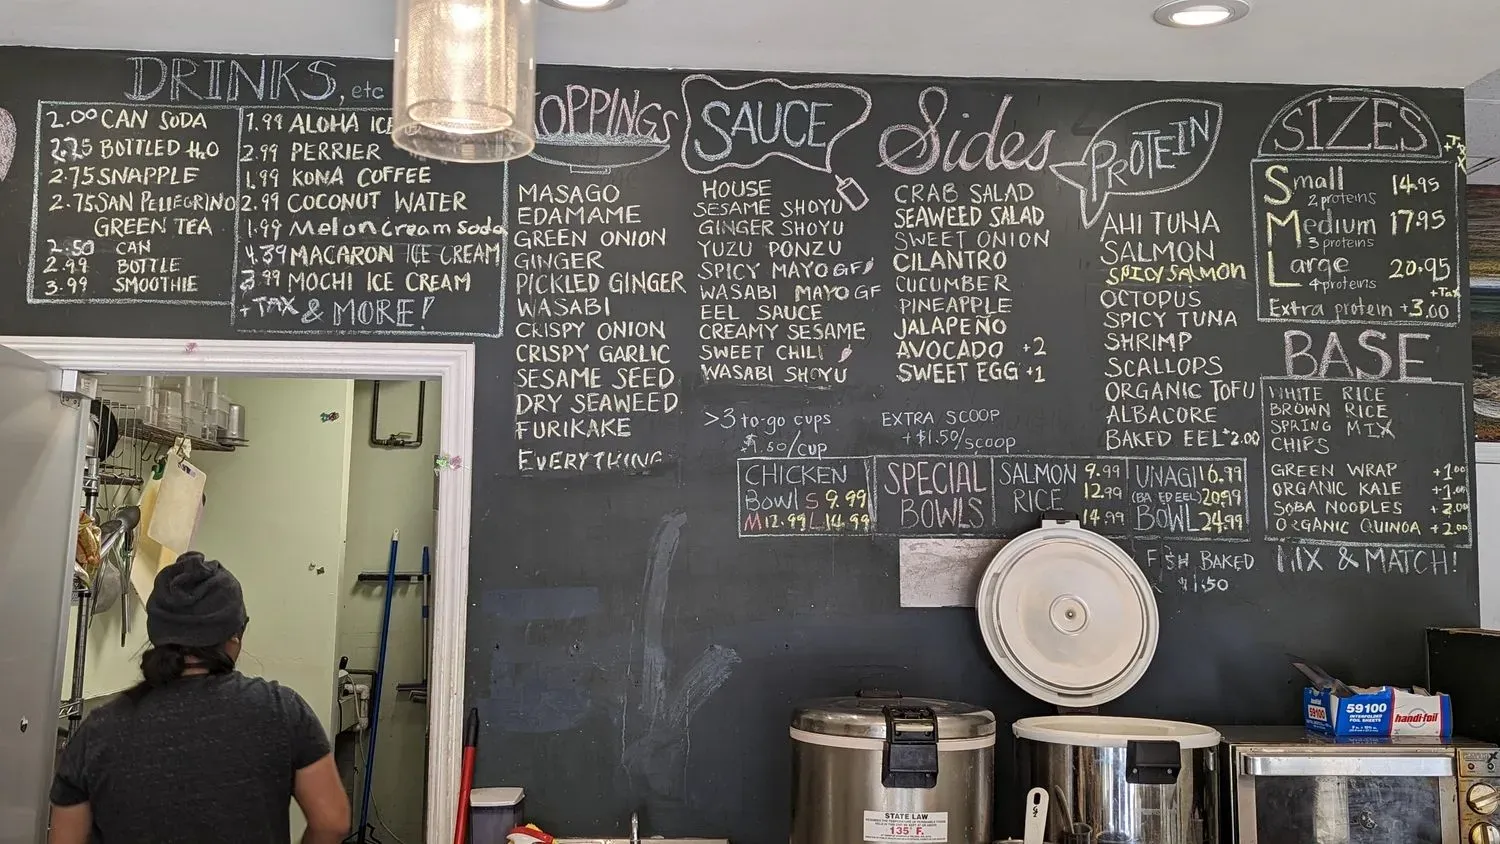 DRINKS, etc
2.00 CAN SODA
2.75 BOTTLED H₂O
2.75 SNAPPLE
2.75 SAN PELLEGRINO
GREEN TEA
2.50 CAN
2.99 BOTTLE
3.99 SMOOTHIE
1.99 ALOHA ICE
2.99 PERRIER
1.99 KONA COFFEE
2.99 COCONUT WATER
1.99 Melon Cream Soda
4.39 MACARON ICE CREAM
3.99 MOCHI ICE CREAM
+TAX & MORE!
TOPPINGS
MASAGO
EDAMAME
GREEN ONION
GINGER
PICKLED GINGER
WASABI
CRISPY ONION
CRISPY GARLIC
SESAME SEED
DRY SEAWEED
FURIKAKE
EVERYTHING
SAUCE
HOUSE
SESAME SHOYU
GINGER SHOYU
YUZU PONZU
SPICY MAYO GF
WASABI MAYO GF
EEL SAUCE
CREAMY SESAME
SWEET CHILI
WASABI SHOYU
>3 to-go cups
$1.50/cup
Sides
CRAB SALAD
SEAWEED SALAD
SWEET ONION
CILANTRO
CUCUMBER
PINEAPPLE
JALAPEÑO
AVOCADO +2
SWEET EGG +1
EXTRA SCOOP
+$1.50/scoop
PROTEIN
AHI TUNA
SALMON
SPICY SALMON
OCTOPUS
SPICY TUNA
SHRIMP
SCALLOPS
ORGANIC TOFU
ALBACORE
BAKED EEL +2.00
SIZES
+Tax
Small 14.95
2 proteins
Medium 17.95
3 proteins
Large 20.95
4 proteins +Tax
Extra protein +3.00
BASE
WHITE RICE
BROWN RICE
SPRING MIX
CHIPS
GREEN WRAP +1.00
ORGANIC KALE +1.00
SOBA NOODLES +2.00
ORGANIC QUINOA +2.00
MIX & MATCH!
CHICKEN
Bowl S 9.99
M 12.99 L 14.99
SPECIAL
BOWLS
SALMON 9.99
RICE 12.99
14.99
UNAGI 16.99
(BAKED EEL) 20.99
BOWL 24.99
FISH BAKED
$1.50
STATE LAW
135° F.
59100
INTERFOLDED
FOIL SHEETS
handi-foil
59100